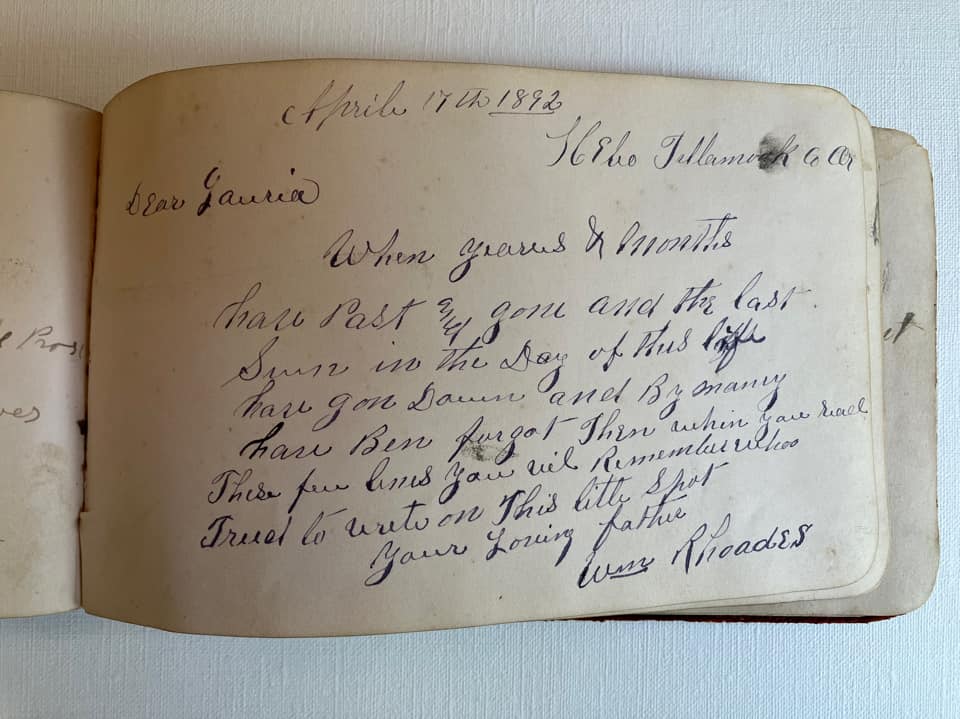 Aprile 17th 1892
HEbo Tillamook Co Or
DEar Lauria
When yearus & Months
have Past & gone and the last
Sunn in the Day of thus life
have gon Down and By many
have Ben forgot Then whin you read
These few lines you wil Remember whoo
Tried to write on This little Spot
your Loving father
Wm RhoadES
et
ves